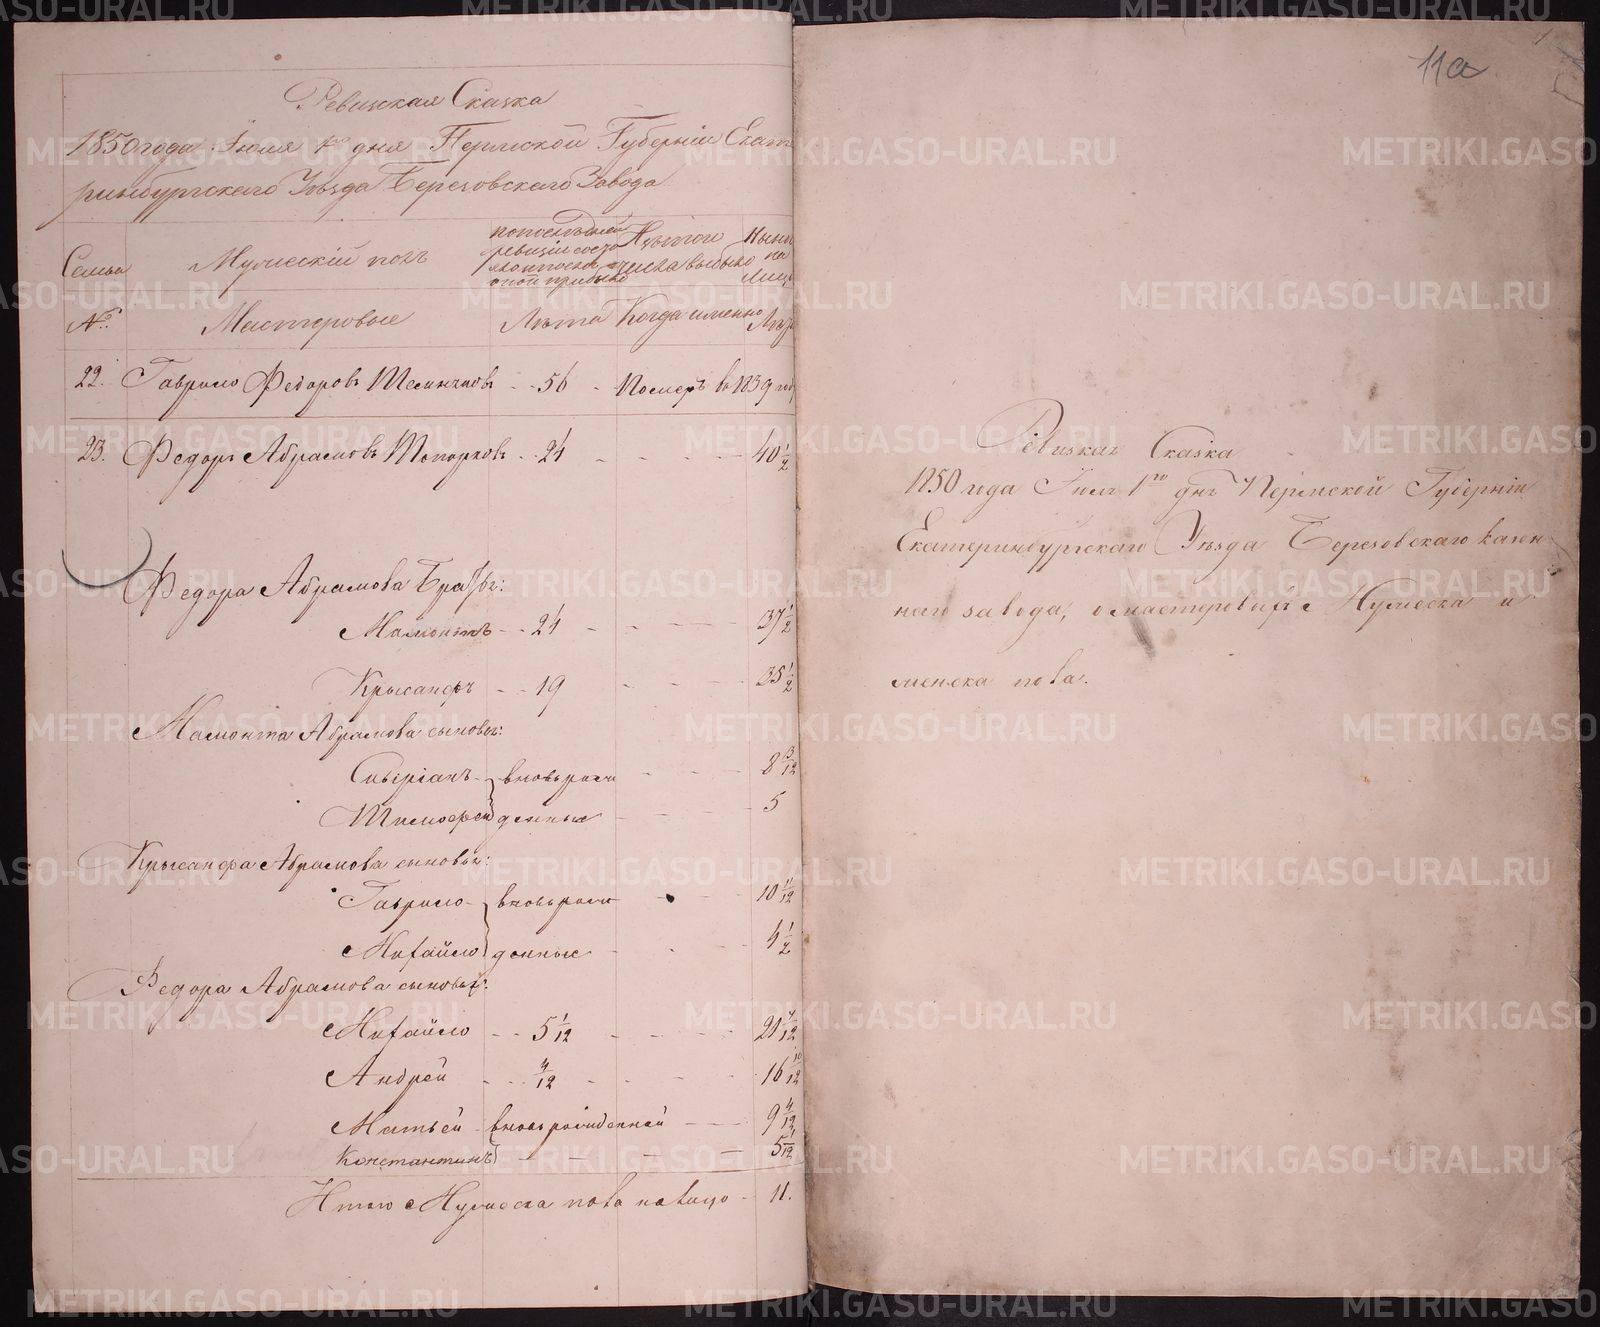 Ревизкая Сказка
1850 года Июля 1го дня Пермской Губерніи Екате
ринбургскаго Уѣзда Березовскаго Завода
Семьи
Мужескій полъ
попослѣдней
ревизіи состо
Изтого
числа выбыло
Нынѣ
на
Лицо
№
Мастеровые
Лѣта
Когда именно
Лѣта
22. Гаврило Федоровъ 56 Померъ въ 1839 году
23. Федоръ Абрамовъ Топорковъ 24 40 1/2
Федора Абрамова Братья:
Мамонтъ 21 37 1/2
Крысанфъ 19 35 1/2
Мамонта Абрамова сыновья:
вновьрож 8 3/12
Тимофей денные 5
Крысанфа Абрамова сыновья:
Гаврило вновьрож 10 11/12
Михайло денные 4 1/2
Федора Абрамова сыновья:
Михайло 5 1/12 21 7/12
Андрей 4/12 16 10/12
Матвей вновьрожденной 9 4/12
Константинъ 5 1/12
Итого Мужеска пола налицо 11.
11а
Ревизкая Сказка
1850 года Июля 1го дня Пермской Губерніи
Екатеринбургскаго Уѣзда Березовскаго казен
наго завода, о мастеровыхъ Мужеска и
женска пола.
METRIKI.GASO-URAL.RU